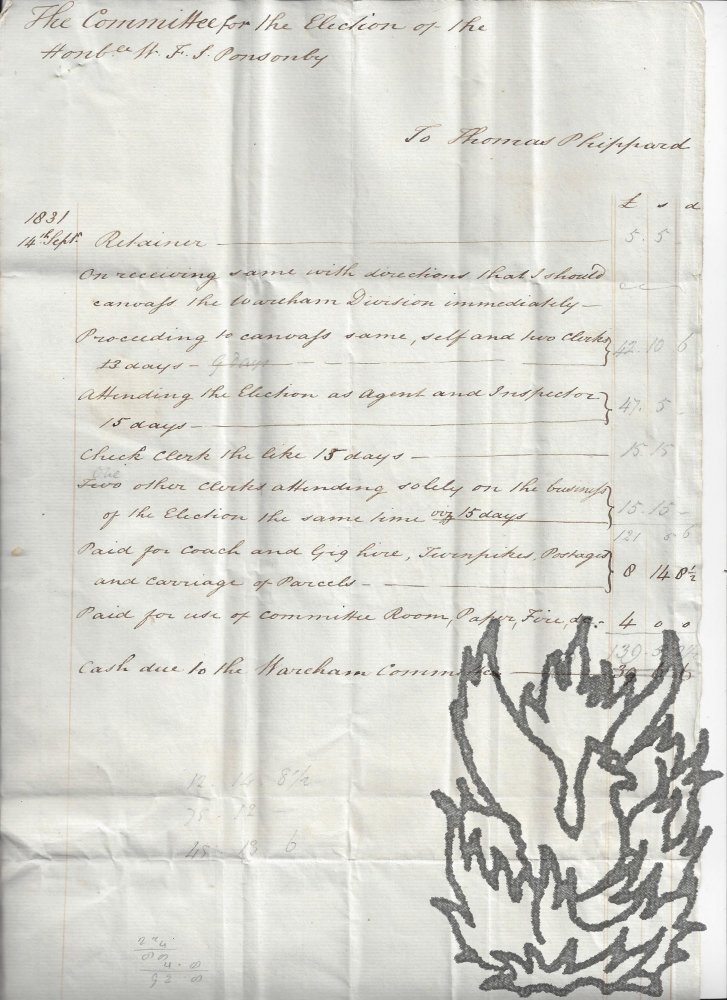 The Committee for the Election of the
Honble W. F. S. Ponsonby
To Thomas Phippard
£ s d
1831
14th Septr. Retainer 5. 5 -
On receiving same with directions that I should
canvass the Wareham Division immediately -
Proceeding to canvass same, self and two Clerks
13 days - 9 Days 42. 10 6
Attending the Election as Agent and Inspector
15 days - 47. 5 -
Check Clerk the like 15 days - 15 15
One
Two other Clerks attending solely on the business
of the Election the same time 15 days 15. 15 -
121 6
Paid for Coach and Gig hire, Turnpikes, Postages
and Carriage of Parcels - 8 14 8½
Paid for use of Committee Room, Paper, Fire, &c: 4 0 0
Cash due to the Wareham
14 8½
12
13 6